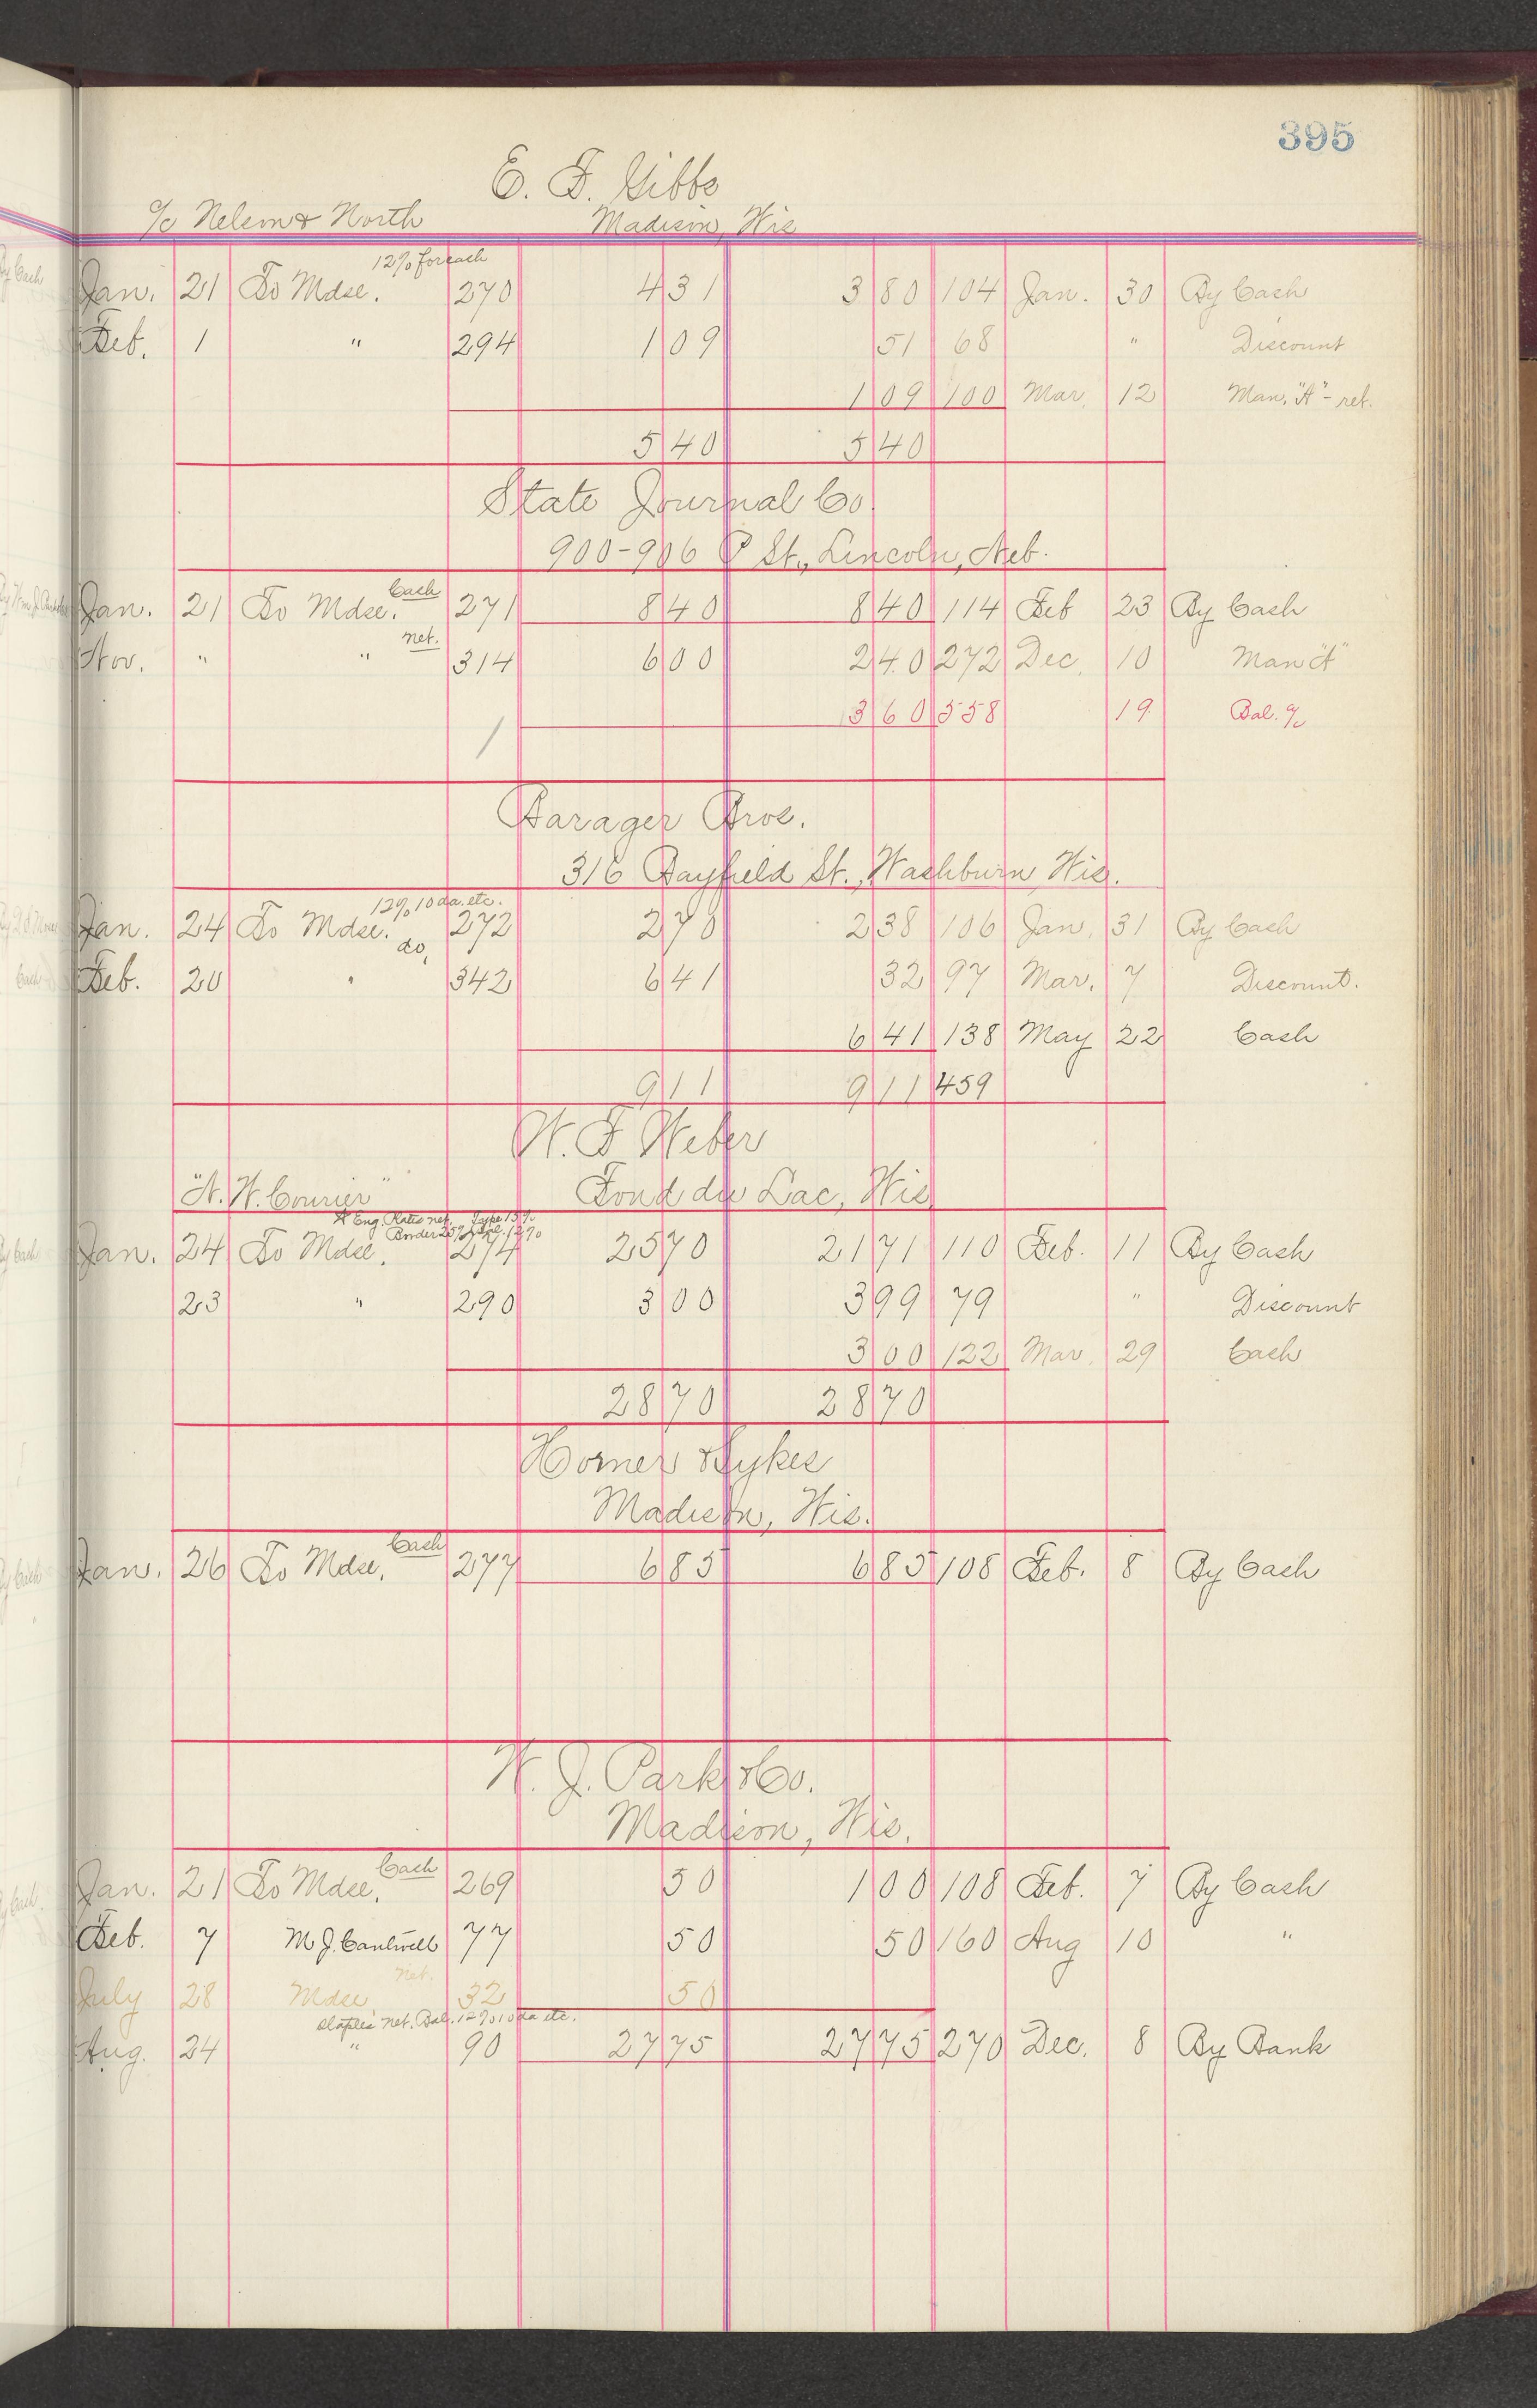 395
E. F. Gibbs
c/o Nelson & North Madison, Wis
12% for cash
Jan. 21 To Mdse. 270 4 31 3 80 104 Jan. 30 By Cash
Feb. 1 " 294 1 09 51 68 " Discount
1 09 100 Mar. 12 Man. "A" - ret.
5 40 5 40
State Journal Co.
900-906 P St., Lincoln, Neb.
Cash
Jan. 21 To Mdse. 271 8 40 8 40 114 Feb 23 By Cash
net.
Nov. " " 314 6 00 2 40 272 Dec. 10 Man "A"
3 60 558 19 Bal. a/c
Barager Bros.
316 Bayfield St., Washburn, Wis.
12% 10 da. etc.
Jan. 24 To Mdse. 272 2 70 2 38 106 Jan. 31 By Cash
do,
Feb. 20 " 342 6 41 32 97 Mar. 7 Discount.
6 41 138 May 22 Cash
9 11 9 11 459
W. F. Weber
"N. W. Courier" Fond du Lac, Wis
Eng. Plates net. Type 15%
Border 25% Bal. 12%
Jan. 24 To Mdse. 274 25 70 21 71 110 Feb. 11 By Cash
23 " 290 3 00 3 99 79 " Discount
3 00 122 Mar. 29 Cash
28 70 28 70
Homer Sykes
Madison, Wis.
Cash
Jan. 26 To Mdse. 277 6 85 6 85 108 Feb. 8 By Cash
W. J. Park & Co.
Madison, Wis.
Cash
Jan. 21 To Mdse. 269 50 1 00 108 Feb. 7 By Cash
Feb. 7 M J. Cantwell 77 50 50 160 Aug 10 "
net.
July 28 Mdse 32 50
Staples net. Bal. 12% 10 da etc.
Aug. 24 " 90 27 75 27 75 270 Dec. 8 By Bank